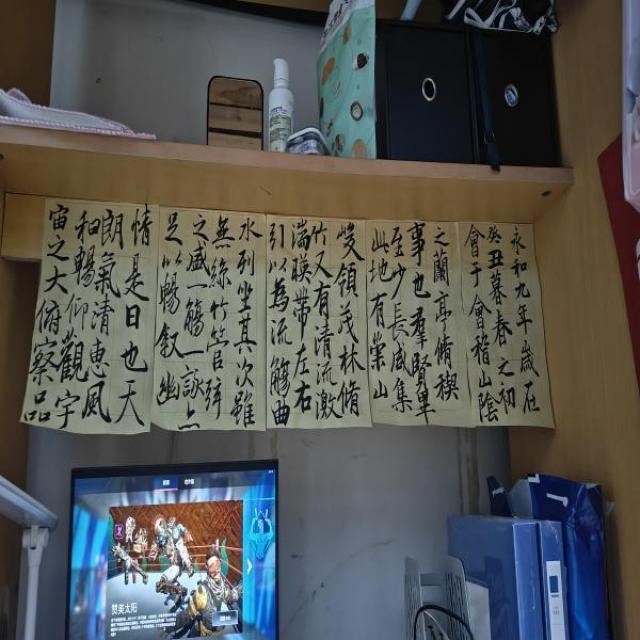 永和九年歲在
癸丑暮春之初
會于會稽山陰
之蘭亭脩禊
事也羣賢畢
至少長咸集
此地有崇山
峻領茂林脩
竹又有清流激
湍暎帶左右
引以為流觴曲
水列坐其次雖
無絲竹管絃
之盛一觴一詠亦
足以暢敘幽
情是日也天
朗氣清惠風
和暢仰觀宇
宙之大俯察品
赞美太阳